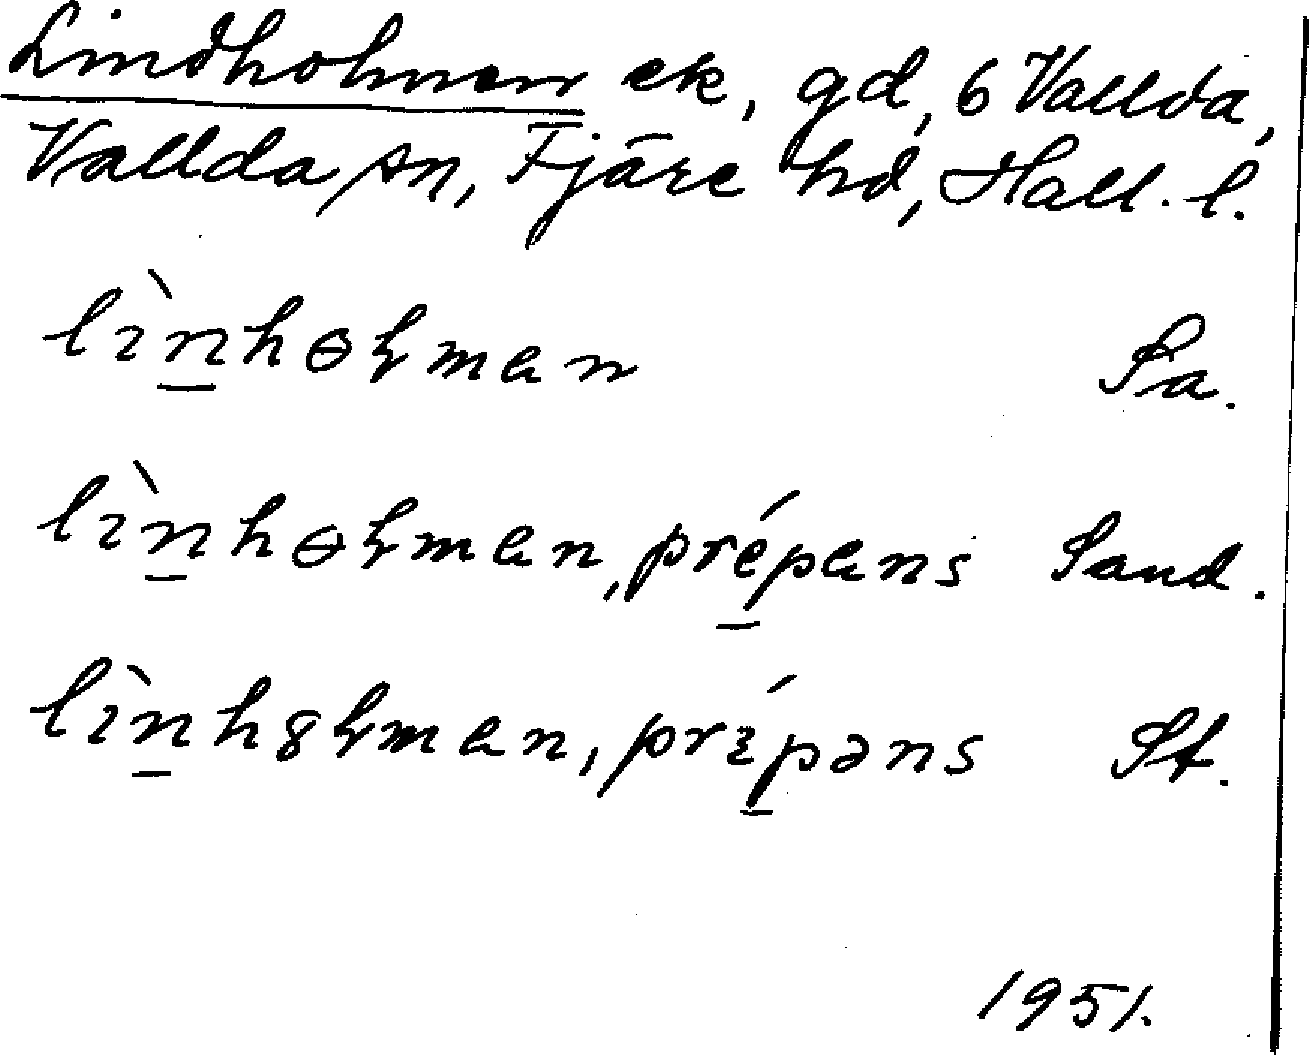 Lindholmen ek, gd, 6 Vallda,
Vallda sn, Fjäre hd, Hall. l.
lìn̲hɵɫman Sa.
lìn̲hɵɫman, prép̲ans Sand.
lìn̲h8ɫman, prɪ́p̲əns St.
1951.